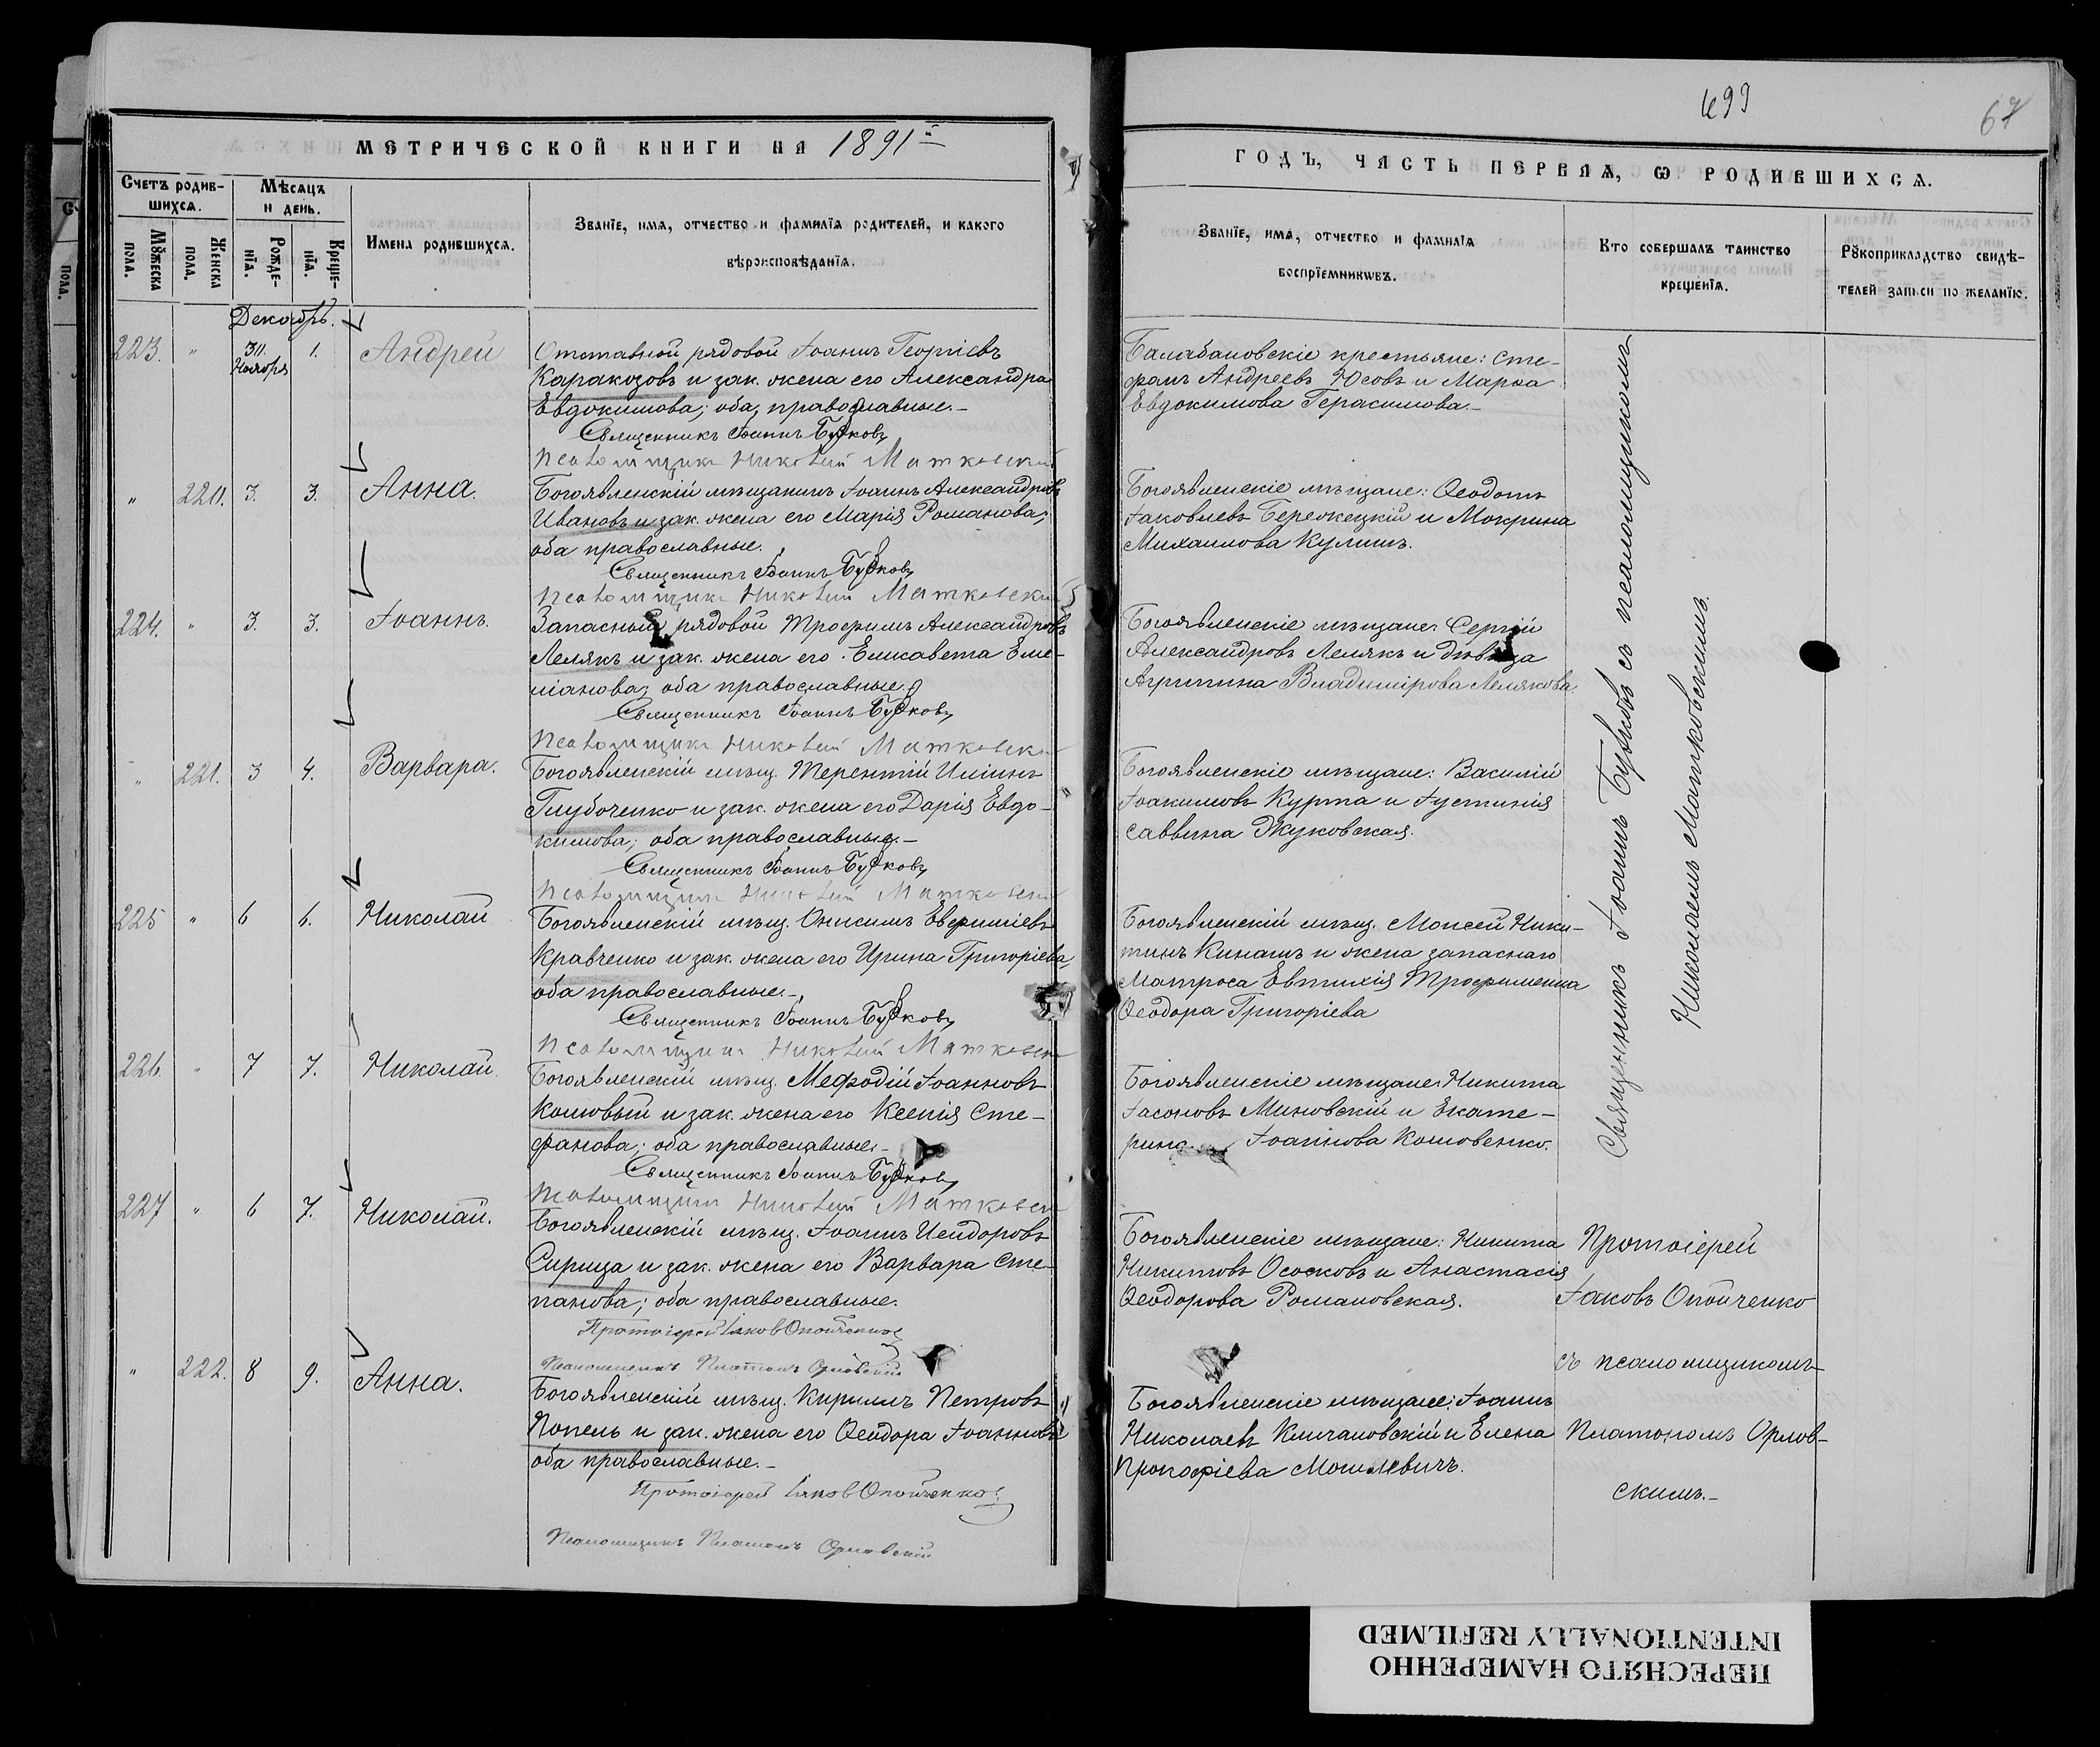 МЕТРИЧЕСКОЙ КНИГИ НА 1891й
Счетъ родив-
шихся.
Мѣсяцъ
и день.
Мꙋжеска
пола.
Женска
пола.
Рожде-
нїя.
Креще-
нїя.
Имена родившихся.
Званїе, имя, отчество и фамилїя родителей, и какого
вѣроисповѣданїя.
Декабрь.
223. " 30. Ноября 1. Андрей
Отставной рядовой Іоаннъ Георгіевъ
Каракозовъ и зак. жена его Александра
Евдокимова; оба, православные.-
Священникъ Іоаннъ Бужковъ
Псаломщикъ Николай Матковскій
" 220. 3. 3. Анна.
Богоявленскій мѣщанинъ Іоаннъ Александровъ
Ивановъ и зак. жена его Марія Романова;
оба православные.
Священникъ Іоаннъ Бужковъ
Псаломщикъ Николай Матковскій
224. " 3. 3. Іоаннъ.
Запасный рядовой Трофимъ Александровъ
Лелякъ и зак. жена его Елисавета Еме-
ліанова; оба православные.
Священникъ Іоаннъ Бужковъ
Псаломщикъ Николай Матковскій
" 221. 3 4. Варвара.
Богоявленскій мѣщ. Терентій Иліинъ
Глубоченко и зак. жена его Дарія Евдо-
кимова; оба православные.-
Священникъ Іоаннъ Бужковъ
Псаломщикъ Николай Матковскій
225 " 6 6. Николай
Богоявленскій мѣщ. Онисимъ Евфиміевъ
Кравченко и зак. жена его Ирина Григоріева,
оба православные.-
Священникъ Іоаннъ Бужковъ
Псаломщикъ Николай Матковскій
226. " 7 7. Николай.
Богоявленскій мѣщ. Мефодій Іоанновъ
Кошовый и зак. жена его Ксенія Сте-
фанова; оба православные-
Священникъ Іоаннъ Бужковъ
Псаломщикъ Николай Матковскій
227 " 6 7. Николай.
Богоявленскій мѣщ. Іоаннъ Исидоровъ
Сирица и зак. жена его Варвара Сте-
панова; оба православные.
Протоіерей Іаковъ Опойченко
Псаломщикъ Платонъ Орловскій
" 222. 8 9. Анна.
Богоявленскій мѣщ. Кириллъ Петровъ
Попель и зак. жена его Ѳеодора Іоаннова
оба православные.-
Протоіерей Іаковъ Опойченко
Псаломщикъ Платонъ Орловскій
499
67
ГОДЪ, ЧАСТЬ ПЕРВАЯ, Ѡ РОДИВШИХСЯ.
Званїе, имя, отчество и фамилїя
воспрїемникωвъ.
Кто совершалъ таинство
крещенїя.
Рꙋкоприкладство свидѣ-
телей записи по желанїю.
Балабановскіе крестьяне: Сте-
фанъ Андреевъ Юсовъ и Марѳа
Евдокимова Герасимова.-
Богоявленскіе мѣщане: Ѳеодотъ
Іаковлевъ Бережецкій и Мокрина
Михаилова Кулишъ.
Богоявленскіе мѣщане: Сергій
Александровъ Лелякъ и дѣвица
Агрипина Владимірова Лелякова.
Богоявленскіе мѣщане: Василій
Іоакимовъ Курта и Іустинія
Саввина Жуковская.
Богоявленскій мѣщ. Моисей Ники-
тинъ Кинашъ и жена запаснаго
матроса Евтихія Трофименка
Ѳеодора Григоріева
Богоявленскіе мѣщане: Никита
Іасоновъ Миновскій и Екате-
рина Іоаннова Кошовенко.
Богоявленскіе мѣщане: Никита
Никитовъ Осоковъ и Анастасія
Ѳеодорова Романовская.
Богоявленскіе мѣщане: Іоаннъ
Николаевъ Климановскій и Елена
Прокофіева Мошкевичъ.
Священникъ Іоаннъ Бужковъ съ псаломщикомъ
Николаемъ Матковскимъ.
Протоіерей
Іаковъ Опойченко
съ псаломщикомъ
Платономъ Орлов-
скимъ.-
ПЕРЕСНЯТО НАМЕРЕННО
INTENTIONALLY REFILMED